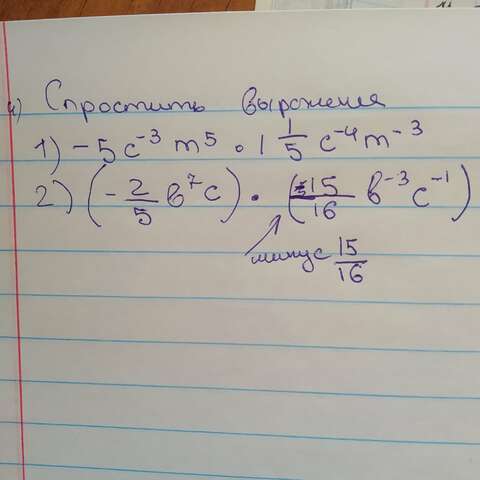 4) Спростить выроження
1) -5c⁻³m⁵ • 1 1/5 c⁻⁴m⁻³
2) (-2/5 в⁷c) • (-15/16 в⁻³c⁻¹)
минус 15/16